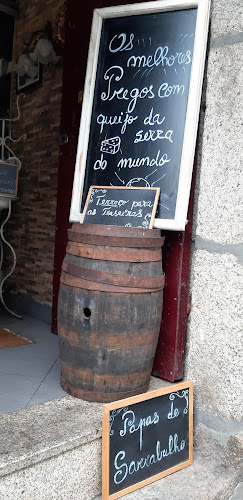 Os
melhores
Pregos com
queijo da
serra
do mundo
Terraço para
as Traseiras
Papas de
Sarrabulho